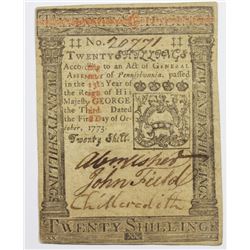 TWENTY SHILLINGS
No. 20771
TWENTY SHILLINGS.
According to an Act of GENERAL
ASSEMBLY of Pennsylvania, passed
in the 13th Year
of the Reign of His
Majesty GEORGE
the Third. Dated
the First Day of Oc-
tober, 1773.
Twenty Shill.
TWENTY SHILLINGS
TWENTY SHILLINGS
John Field
Ch Meredith
TWENTY SHILLINGS